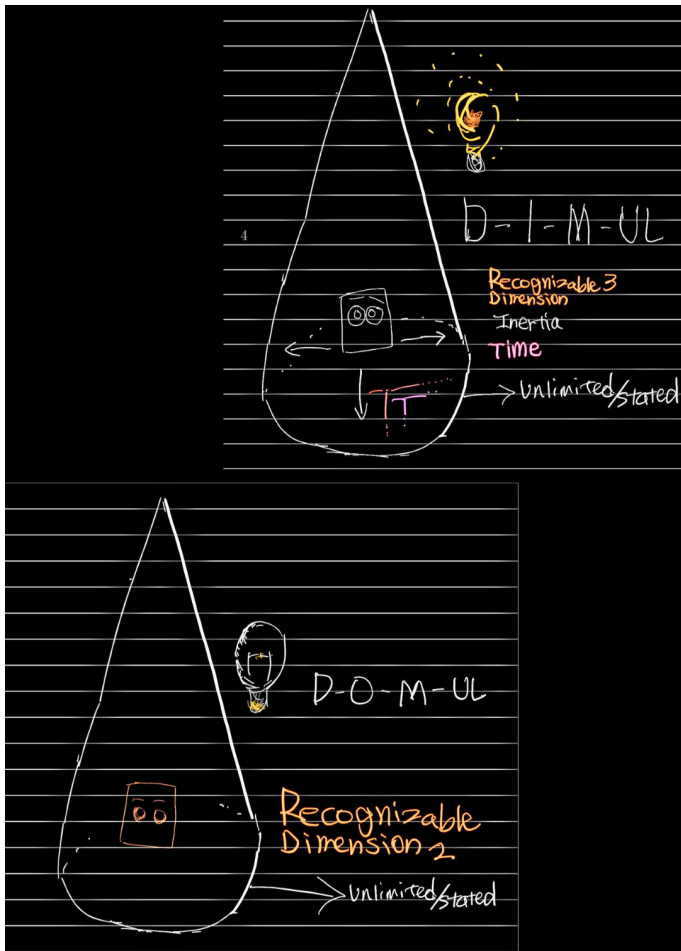 D-I-M-UL
4
Recognizable 3
Dimension
Inertia
Time
T T
Unlimited/stated
D-O-M-UL
Recognizable
Dimension 2
Unlimited/stated